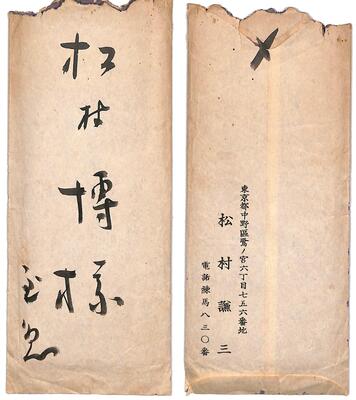 松村博様
至急
東京都中野區鷺ノ宮六丁目七五六番地
松村謙三
電話練馬八三〇番